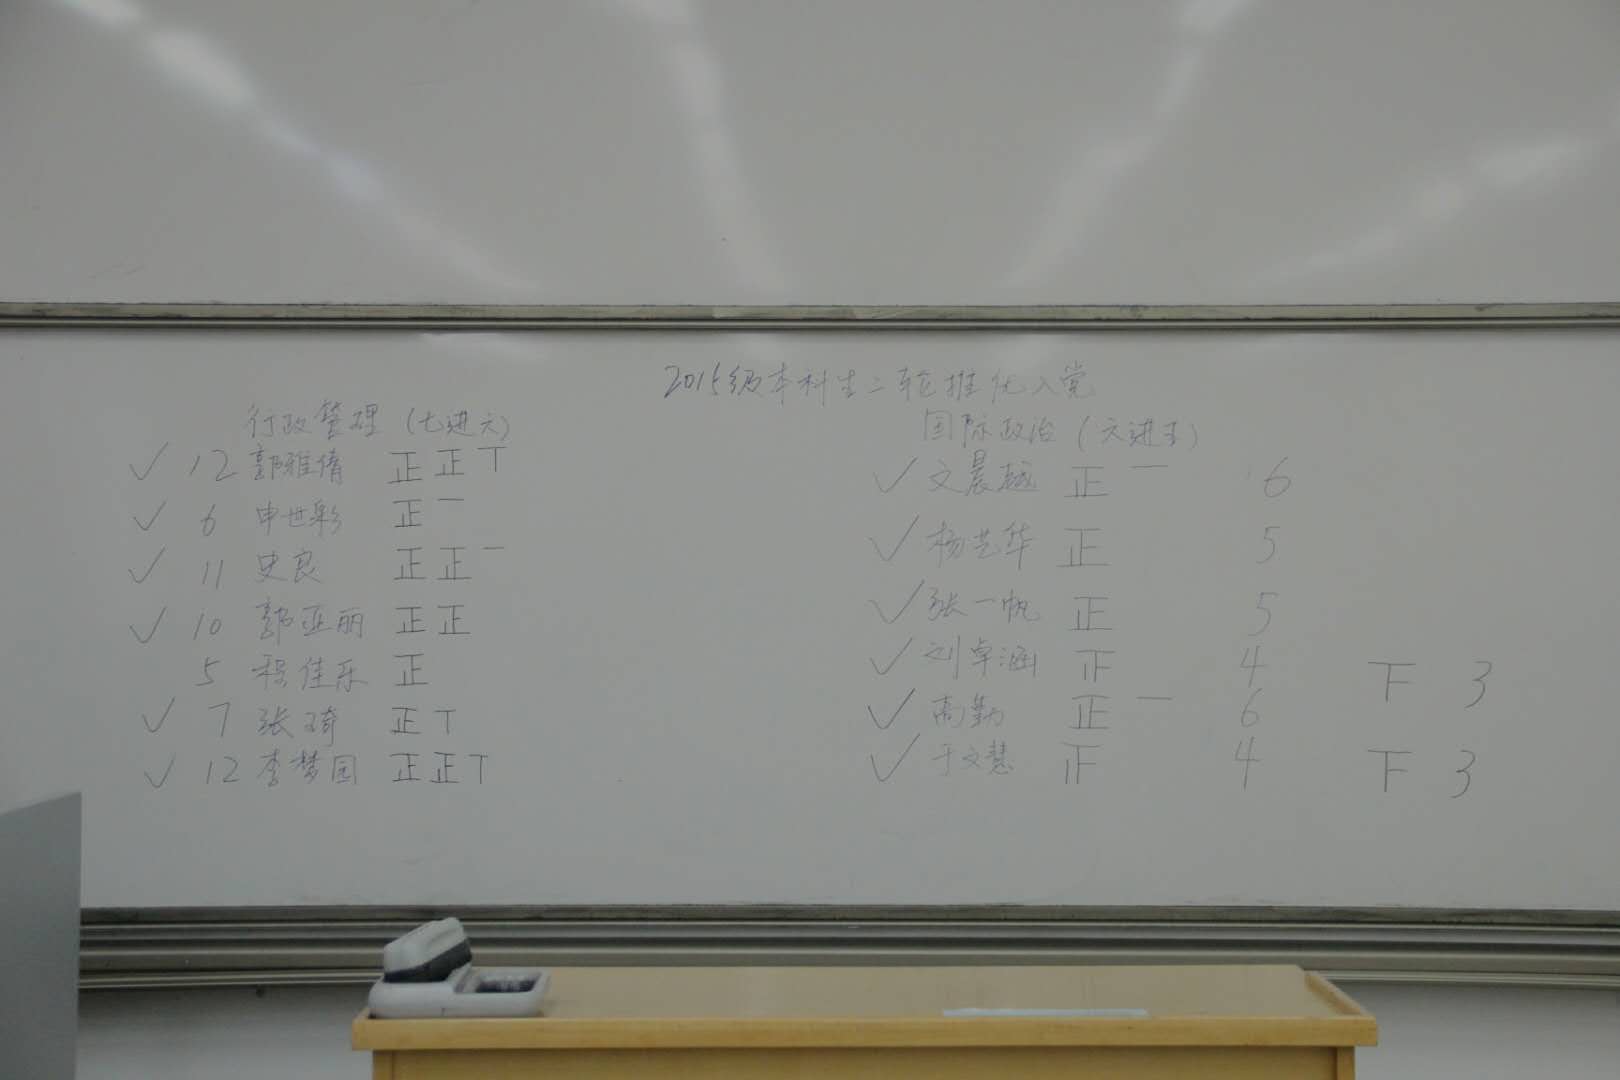 2015级本科生二轮推优入党
行政管理（七进六）
✓ 12 郭雅倩 正 正 T
✓ 6 申世彩 正 一
✓ 11 史良 正 正 一
✓ 10 郭亚丽 正 正
5 程佳乐 正
✓ 7 张琦 正 T
✓ 12 李梦园 正 正 T
国际政治（六进五）
✓ 文晨越 正 一 6
✓ 杨艺华 正 5
✓ 张一帆 正 5
✓ 刘卓涵 正 4 下 3
✓ 高勤 正 一 6
✓ 于文慧 正 4 下 3